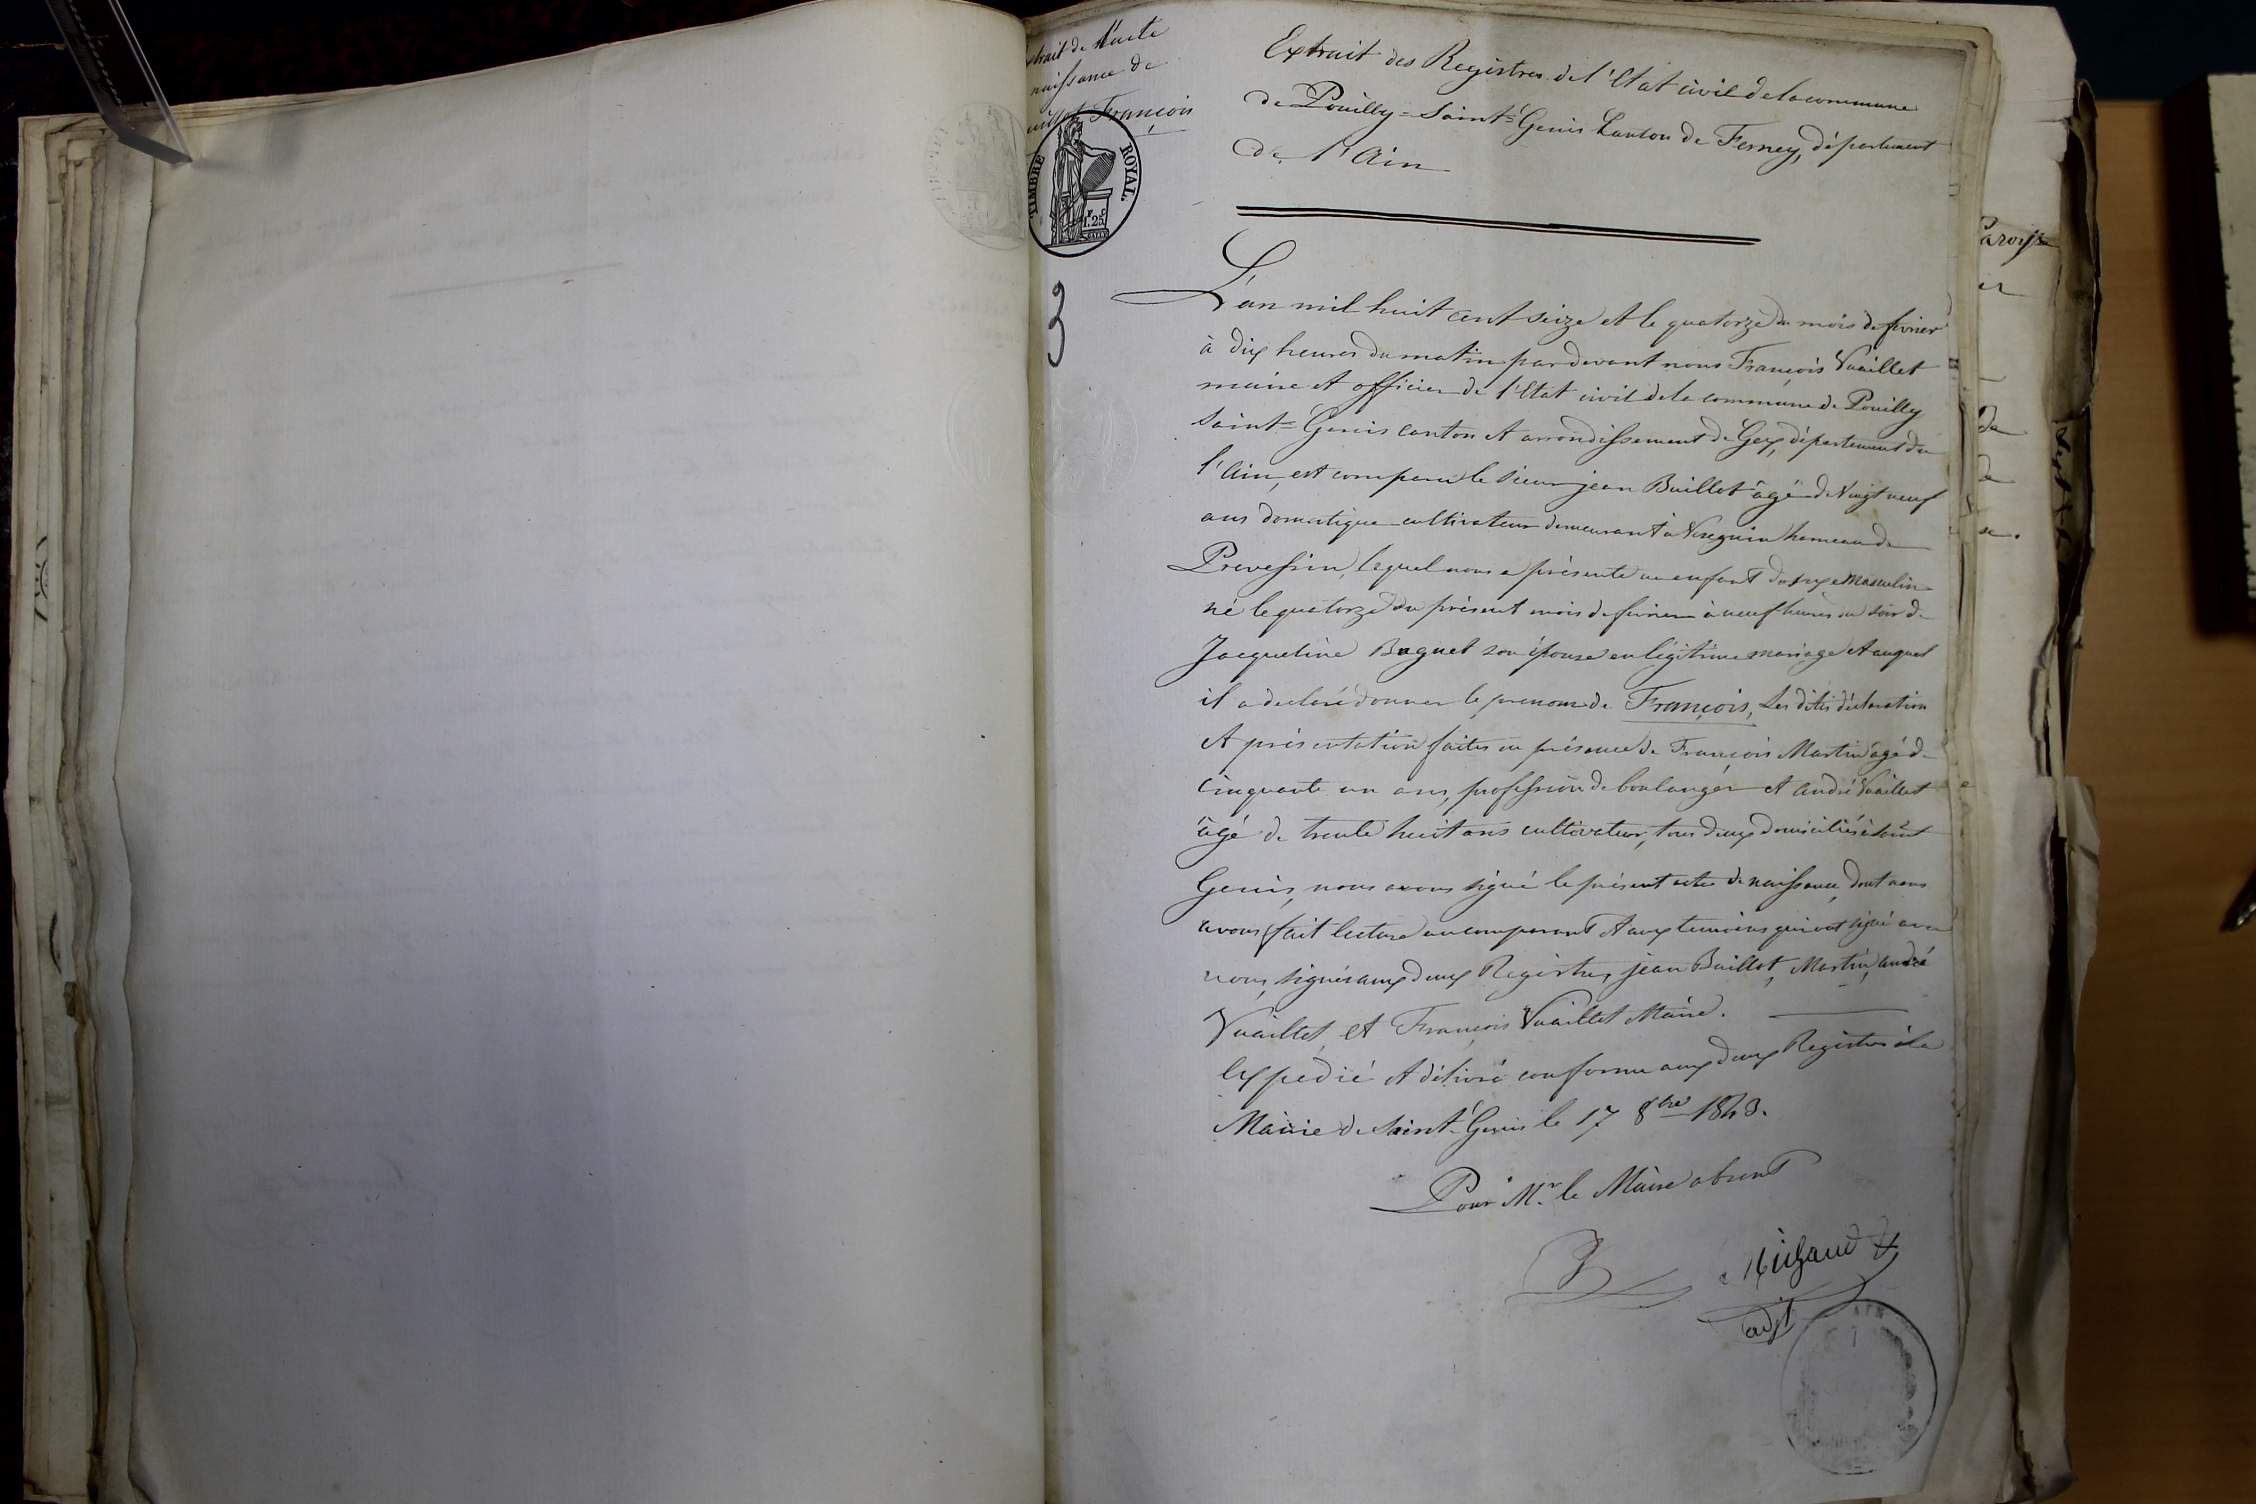 Extrait de l'acte
naissance de
François
TIMBRE ROYAL
1.F 25.C
3
Extrait des Registres de l'Etat civil de la commune
de Pouilly=Saint=Genis Canton de Ferney, département
de l'Ain
L'an mil huit cent seize et le quatorze du mois de fevrier
à dix heures du matin par devant nous François Vuaillet
maire et officier de l'Etat civil de la commune de Pouilly
Saint=Genis canton et arrondissement de Gex, département de
l'Ain, est comparu le sieur jean Buillot âgé de Vingt neuf
ans domestique cultivateur demeurant à Vesegnin hameau de
Prevessin, lequel nous a présenté un enfant du sexe Masculin
né le quatorze du présent mois de fevrier à neuf heures du soir de
Jacqueline Baguet son épouse en légitime mariage et auquel
il a declaré donner le prenom de François, Les dites déclaration
et présentation faites en présence de François Martin âgé de
Cinquante un ans, profession de boulanger et andré Vuaillet
âgé de trente huit ans cultivateur, tous deux domiciliés à Saint
Genis, nous avons signé le présent acte de naissance, dont nous
avons fait lecture au comparant et aux temoins qui ont signé avec
nous, signés aux deux Registres, jean Buillot, Martin, andré
Vuaillet, et François Vuaillet Maire.
Expedié et délivré conforme aux deux Registres à la
Mairie de Saint-Genis le 17 8bre 1843.
Pour Mr. le Maire absent
Michaud
adjt
AIN
Paroisse
de
de